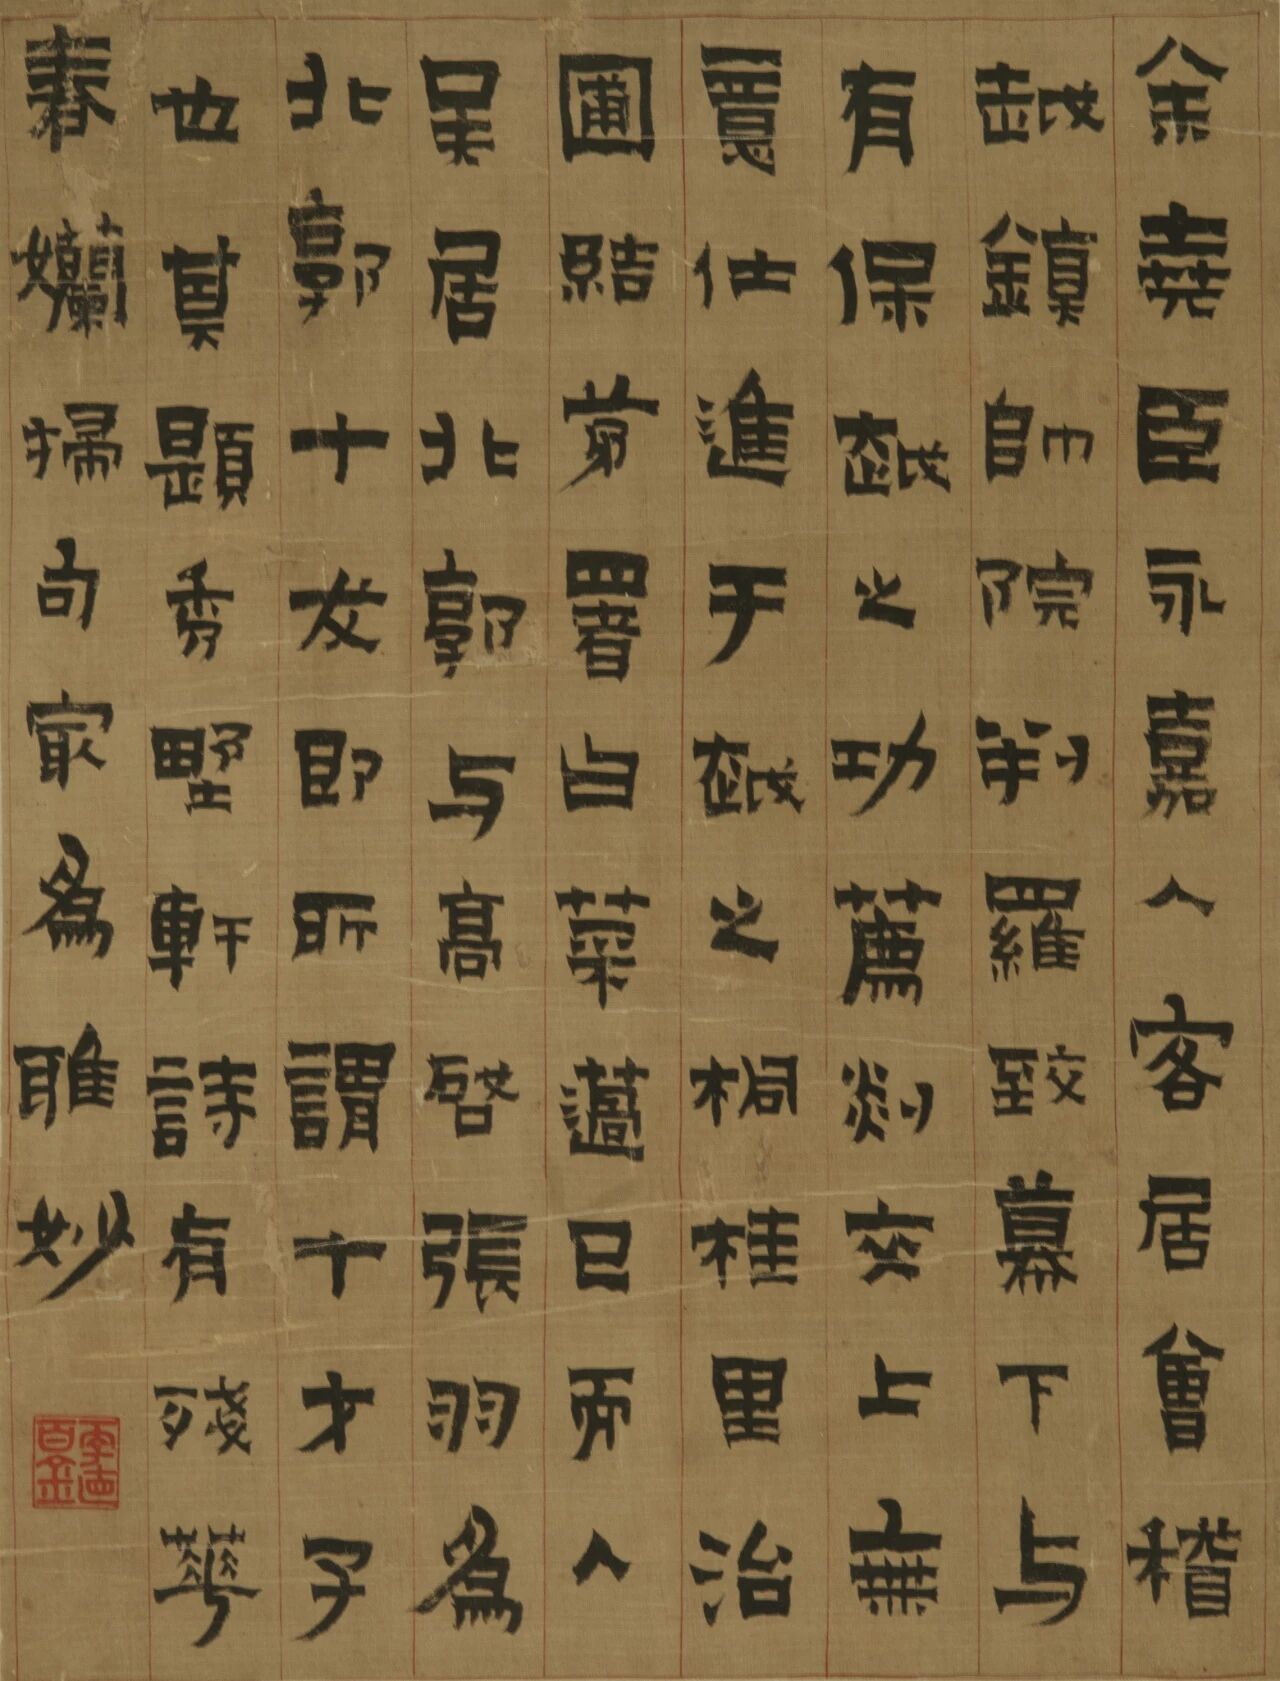 余堯臣永嘉人客居會稽
越鎮帥院判羅致幕下与
有保越之功薦剡交上無
意仕進于越之桐桂里治
圃結茅署曰菜薖已而入
吴居北郭与高啓張羽為
北郭十友即所謂十才子
也其題秀野軒詩有殘華
春孏掃句最為雅妙